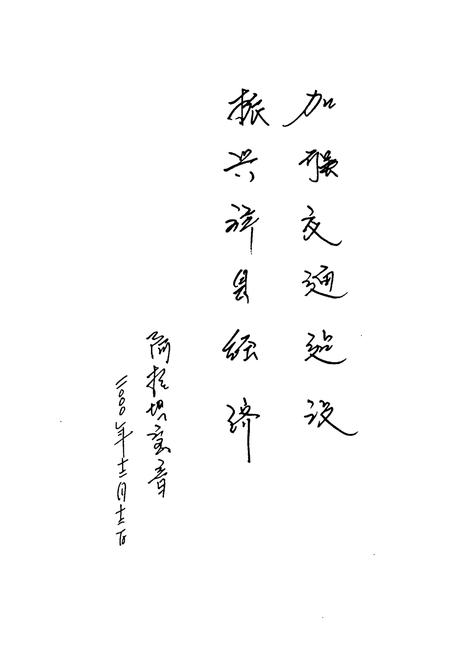 加强交通建设
振兴旗县经济
阿拉坦宝音
二000年十二月十二日